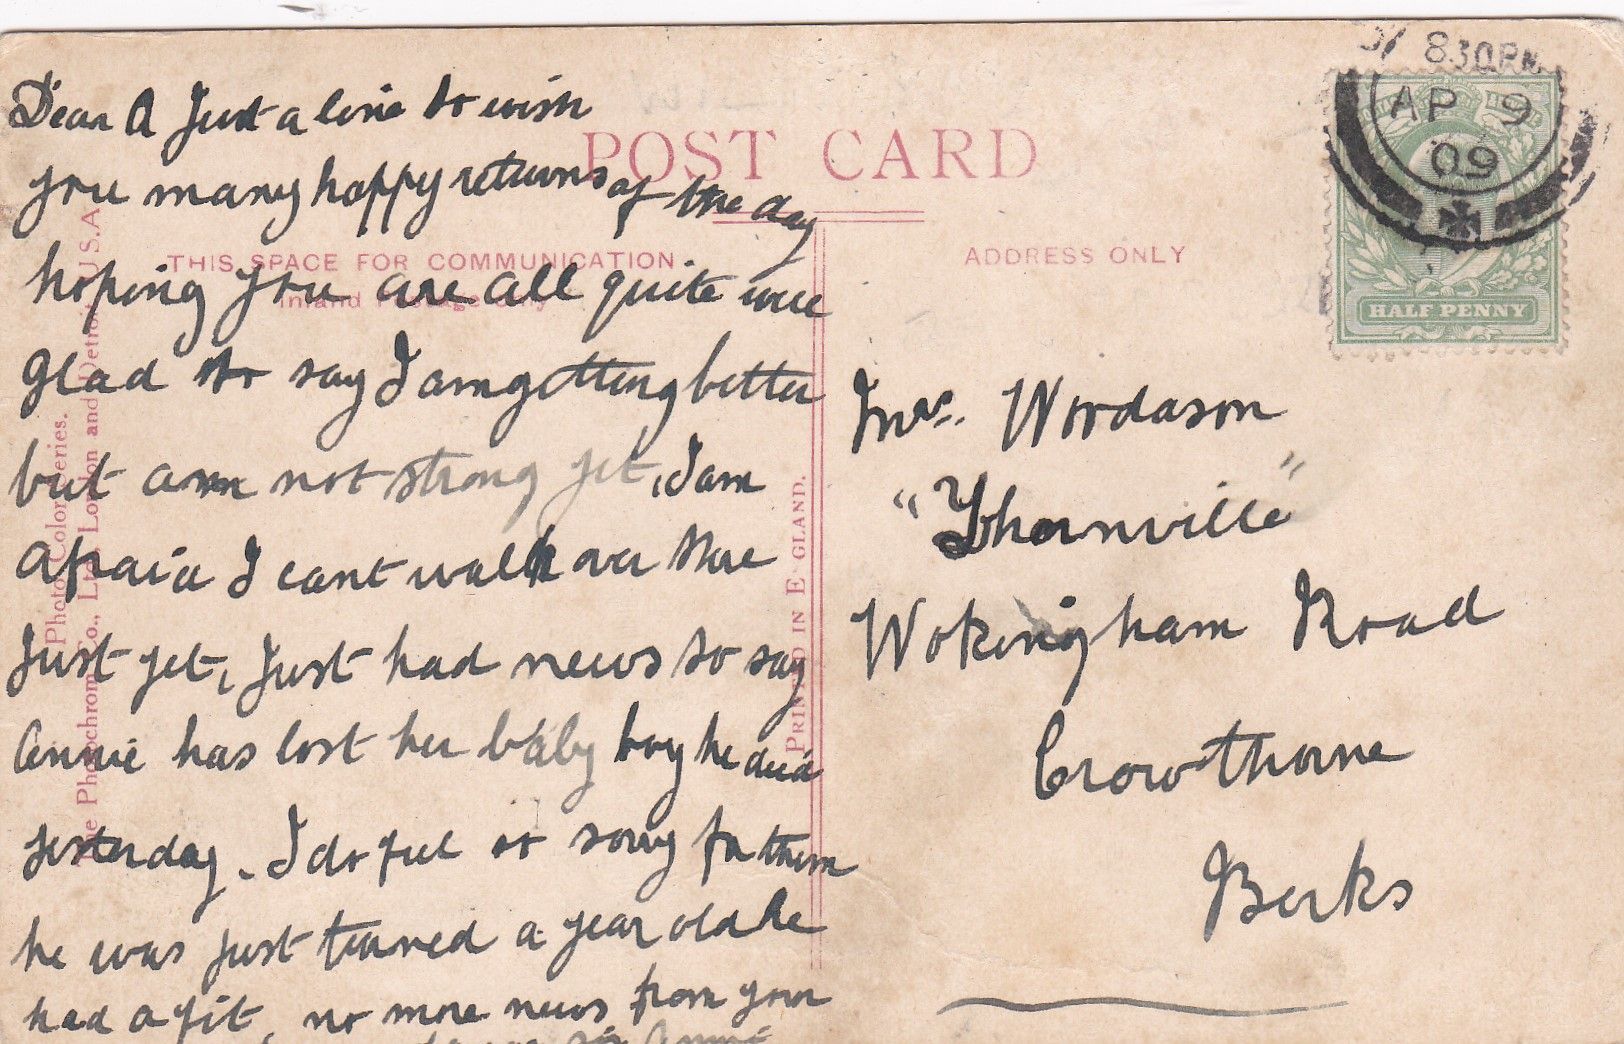 Dear A Just a line to wish
you many happy returns of the day
hoping you are all quite well
Glad to say I am getting better
but am not strong yet, I am
afraid I cant walk over there
Just yet, Just had news to say
Annie has lost her baby boy he died
yesterday. I do feel so sorry for them
he was just turned a year old he
had a fit, no more news from your
Annie
POST CARD
THIS SPACE FOR COMMUNICATION
Inland Postage only
ADDRESS ONLY
The Photochrom Co., Ltd. London and Detroit U.S.A.
Photo Colorieries.
PRINTED IN E GLAND.
8 30PM
AP 9
09
HALF PENNY
Mrs. Wordason
"Thornville"
Wokingham Road
Crowthorne
Berks